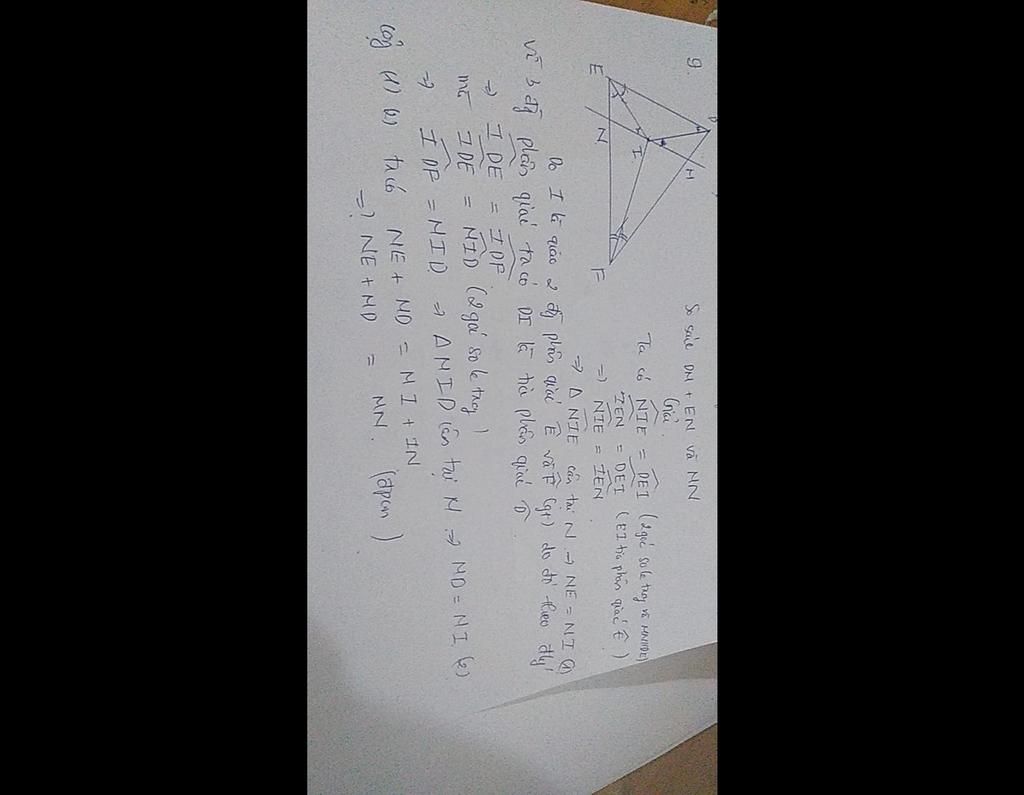 9.
D
M
I
E
N
F
So sánh DM + EN và MN
Giải
Ta có NIE = DEI (2 góc so le trong và MN//DE)
IEN = DEI (EI tia phân giác Ê)
=> NIE = IEN
=> Δ NIE cân tại N => NE = NI (1)
Do I là giao 2 đg phân giác Ê và F (gt) do đó theo đlý
về 3 đg phân giác ta có DI là tia phân giác D
=> IDE = IDF
mà IDE = MID (2 góc so le trong)
=> IDF = MID => Δ MID cân tại M => MD = MI (2)
Cộng (1) (2) ta có NE + MD = MI + IN
=> NE + MD = MN. (đpcm)